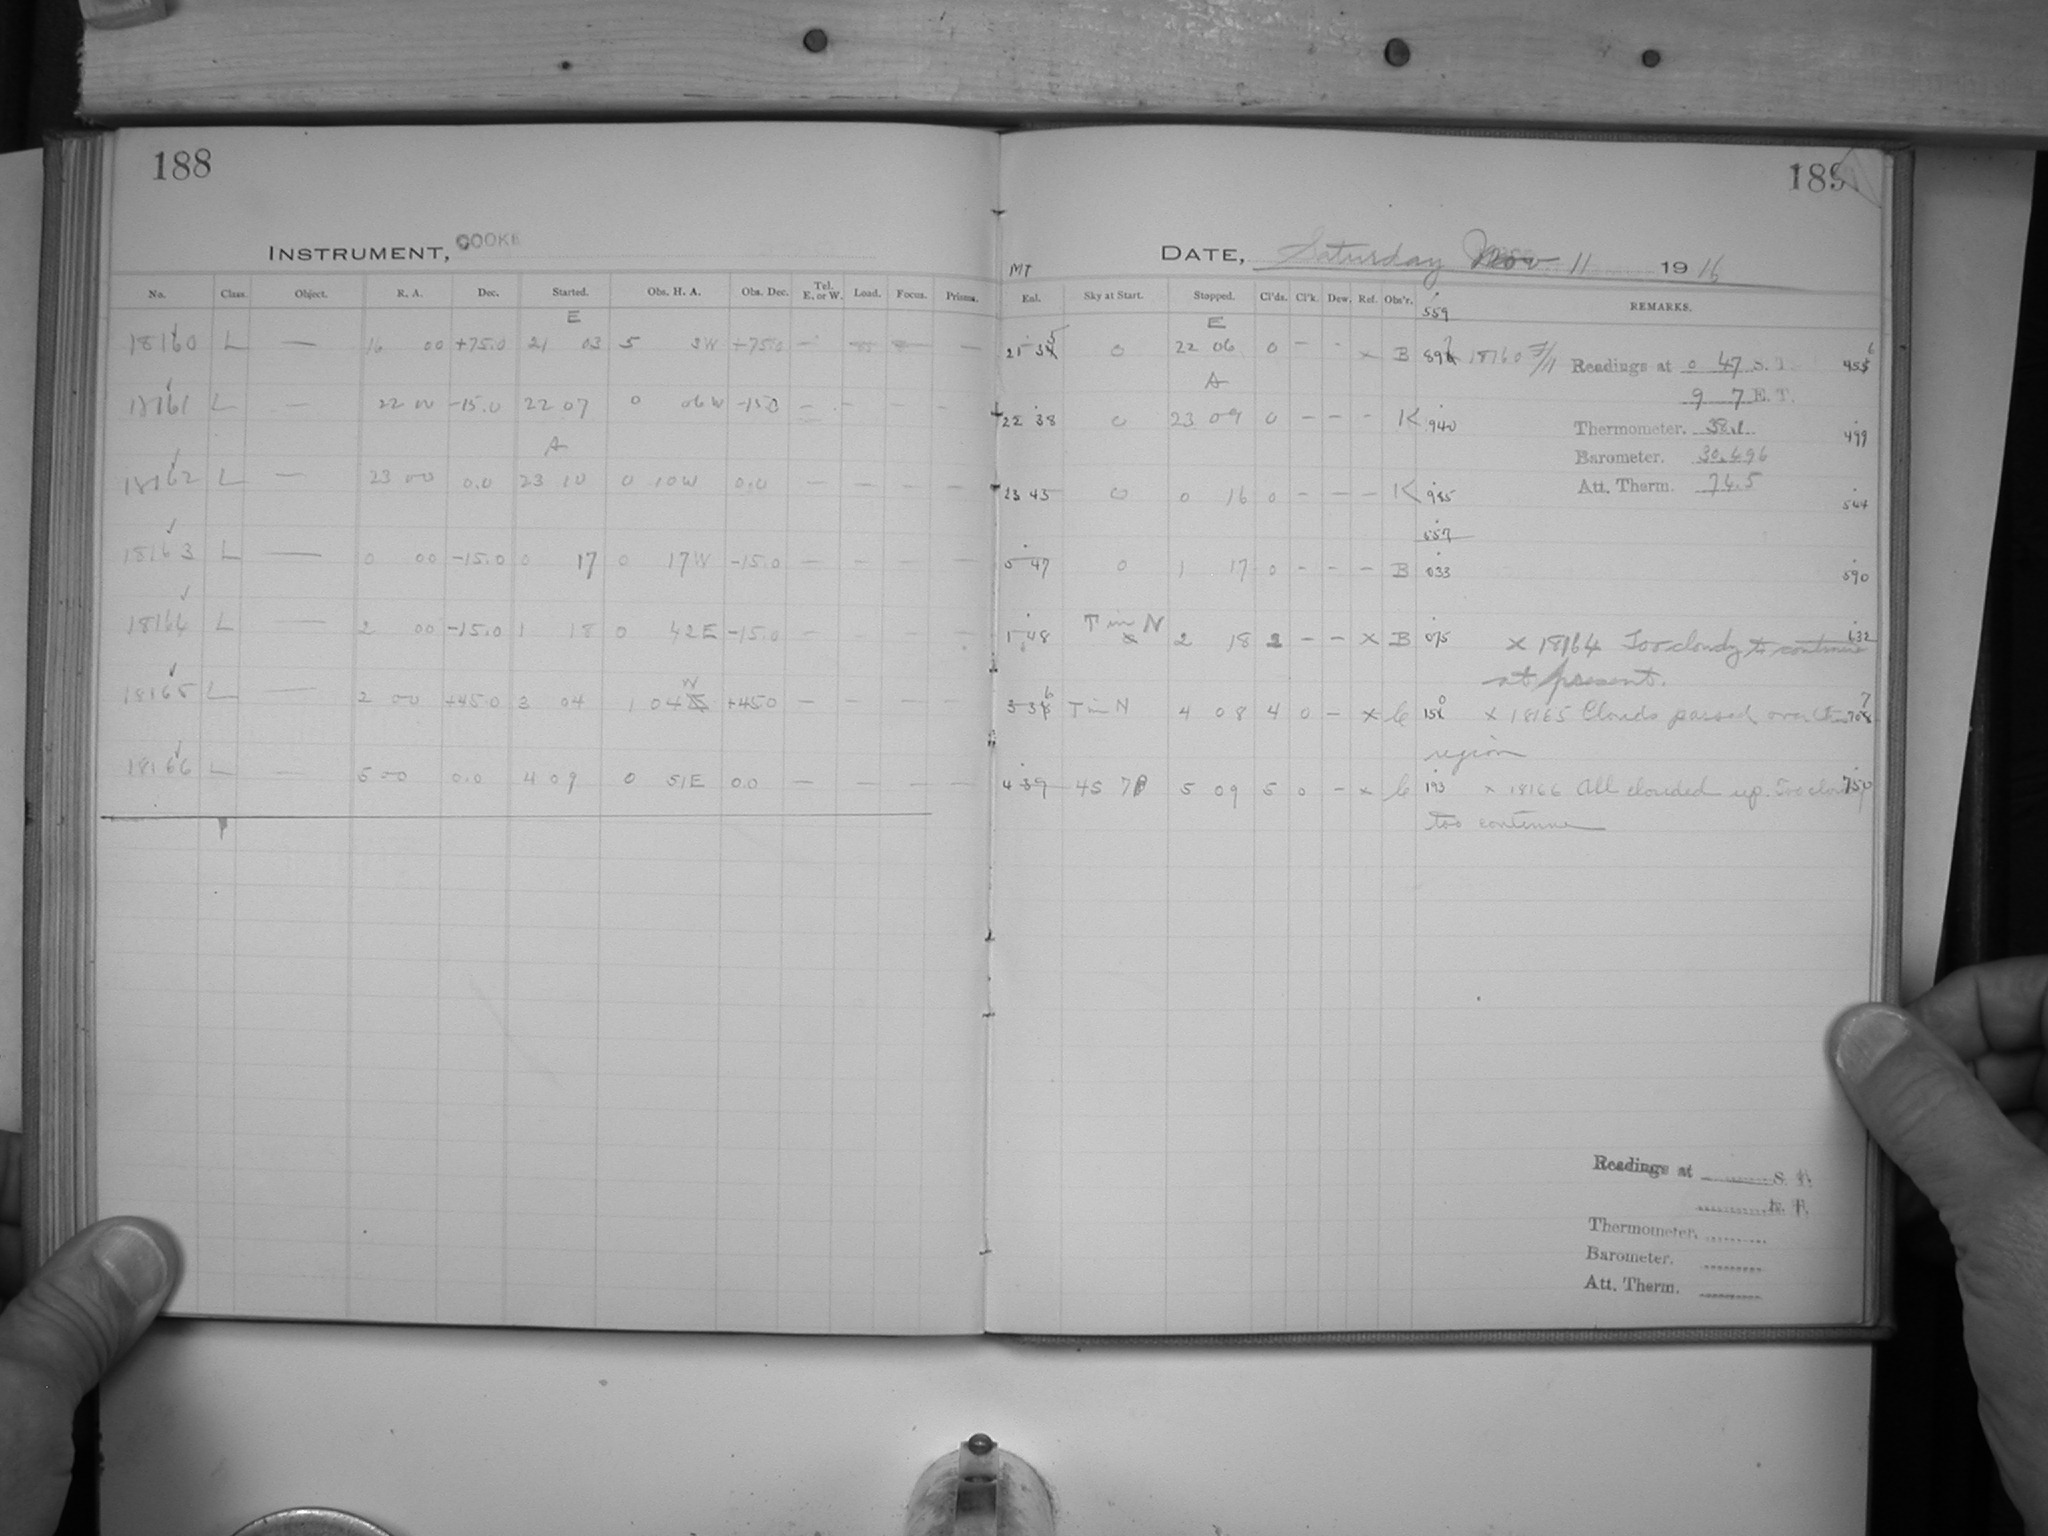 188
INSTRUMENT, COOKE
No. Class. Object. R. A. Dec. Started. Obs. H. A. Obs. Dec. Tel. E. or W. Load. Focus. Prisms.
E
18160 L — 16 00 +75.0 21 03 5 3W +75.0 — — — —
18161 L — 22 00 -15.0 22 07 0 06W -15.0 — — — —
A
18162 L — 23 00 0.0 23 10 0 10W 0.0 — — — —
18163 L — 0 00 -15.0 0 17 0 17W -15.0 — — — —
18164 L — 2 00 -15.0 1 18 0 42E -15.0 — — — —
W
18165 L — 2 00 +45.0 3 04 1 04 +45.0 — — — —
18166 L — 5 00 0.0 4 09 0 51E 0.0 — — — —
189
DATE, Saturday Nov 11 1916
MT
Exl. Sky at Start. Stopped. Cl'ds. Cl'k. Dew. Ref. Obs'r. REMARKS.
559
E
21 35 0 22 06 0 - - x B 18160
A
22 38 0 23 09 0 - - - K 940
23 43 0 0 16 0 - - - K 985
557
0 47 0 1 17 0 - - - B 033
1 48 T in N 2 18 2 - - x B 075 x 18164 Too cloudy to continue 632
at present.
3 36 T in N 4 08 4 0 - x C 150 x 18165 Clouds passed over 707
region
4 39 4S 4 5 09 5 0 - x C 193 x 18166 All clouded up. Too cloudy 750
too continue
Readings at 0 47 S. T. 456
9 7 E. T.
Thermometer. 38.1 499
Barometer. 30.496
Att. Therm. 74.5
544
590
Readings at S. T.
E. T.
Thermometer.
Barometer.
Att. Therm.